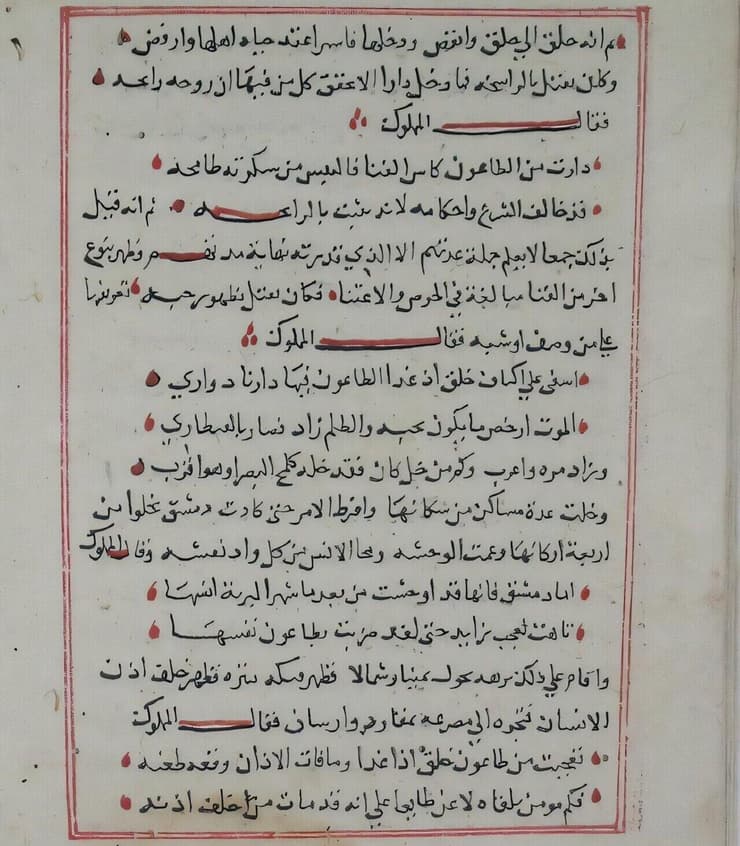 ثم انه حلق الي جلق وانغض ودخلها فاسرا عند حباه اهلها وارفض
وكان يقتل بالرايحه فما دخل دارا الا تحقق كل من فيها ان روحه رايحه
فقال المملوك
دارت من الطاعون كاس الفنا فالنفس من سكرته طافحه
قد خالف الشرع واحكامه لانه يثبت بالرايحه ثم انه قتل
بذلك جمعا لا يعلم جملة عدتهم الا الذي قدر له نهاية مدتهم وظهر بنوع
اخر من الفنا مبالغة في الحرص والاعتنا فكان يقتل بظهور حبه
علي من وصف او شبه فقال المملوك
اسفي علي اكناف جلق اذ غدا الطاعون فيها دار نار دواري
الموت ارخص ما يكون بحبه والظلم زاد فصار بالقنطاري
وزاد مره واعرب وكم من خل كان فقد خله كلمح البصر او هو اقرب
وخلت عدة مساكن من سكانها وافرط الامر حتي كادت دمشق تخلوا من
اربعة اركانها وعمت الوحشه ومحا الانس من كل واد نعشه وقال المملوك
اما دمشق فانها قد اوحشت من بعد ما شهر البرية انسها
تاهت بعجب زايد حتي لقد ضربت بطاعون نفسها
واقام علي ذلك برهه يجول يمينا وشمالا فظهر خلف اذن
الانسان فتجره الي مصرعه بمقاود وارسان فقال المملوك
تعجبت من طاعون جلق اذا غدا وما فات الاذان وقعه طعنه
فكم مومن تلقاه لاعن طايعا علي انه قد مات من خلف اذنه